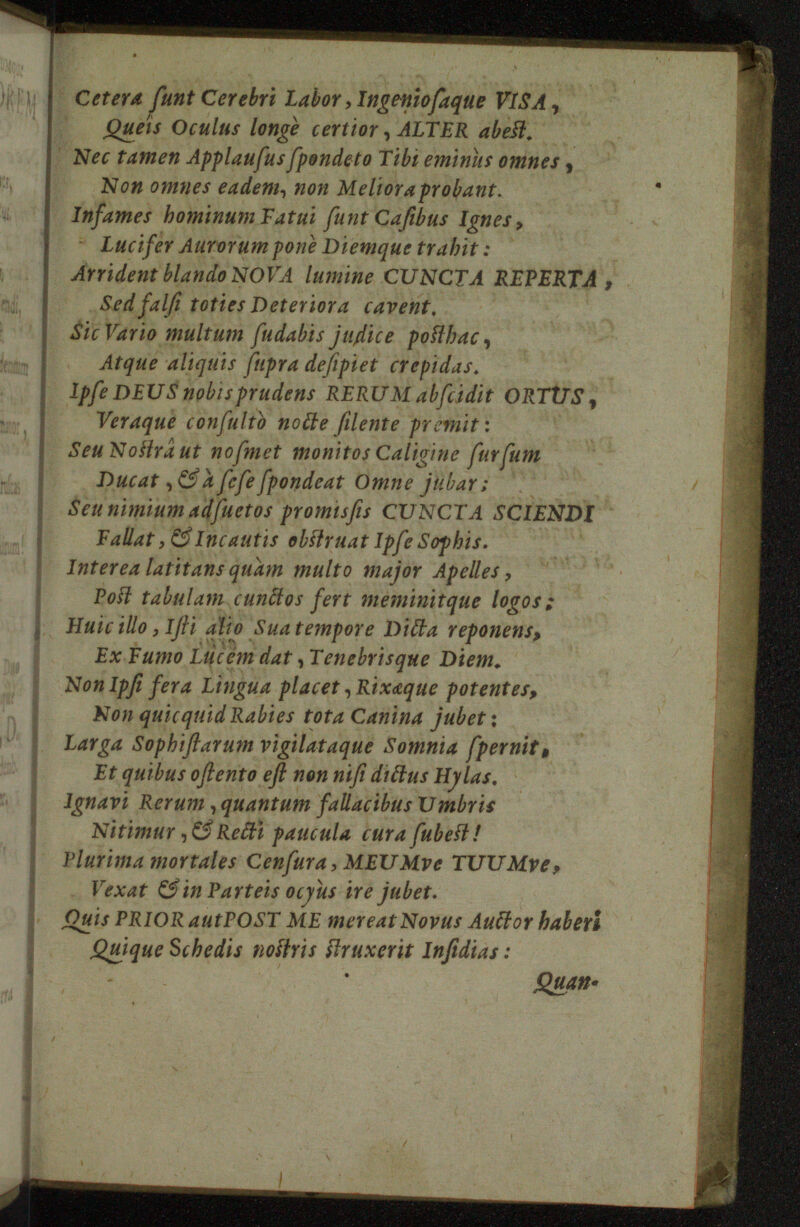 Cetera ſunt Cerebri Labor, Ingenioſaque VISA,
Queis Oculus longè certior, ALTER abeſt.
Nec tamen Applauſus ſpondeto Tibi eminùs omnes,
Non omnes eadem, non Meliora probant.
Infames hominum Fatui ſunt Caſibus Ignes,
Lucifer Aurorum ponè Diemque trahit:
Arrident blando NOVA lumine CUNCTA REPERTA,
Sed falſi toties Deteriora cavent.
Sic Vario multum ſudabis judice poſthac,
Atque aliquis ſupra deſipiet crepidas.
Ipſe DEUS nobis prudens RERUM abſcidit ORTUS,
Veraque conſultò nocte ſilente premit:
Seu Noſtrâ ut noſmet monitos Caligine ſurſum
Ducat, & à ſeſe ſpondeat Omne jubar;
Seu nimium adſuetos promisſis CUNCTA SCIENDI
Fallat, & Incautis obſtruat Ipſe Sophis.
Interea latitans quàm multo major Apelles,
Poſt tabulam cunctos fert meminitque logos;
Huic illo, Iſti alio Sua tempore Dicta reponens,
Ex Fumo Lucem dat, Tenebrisque Diem.
Non Ipſi fera Lingua placet, Rixæque potentes,
Non quicquid Rabies tota Canina jubet;
Larga Sophiſtarum vigilataque Somnia ſpernit,
Et quibus oſtento eſt non niſi dictus Hylas.
Ignavi Rerum, quantum fallacibus Umbris
Nitimur, & Recti paucula cura ſubeſt!
Plurima mortales Cenſura, MEUMve TUUMve,
Vexat & in Parteis ocyùs ire jubet.
Quis PRIOR aut POST ME mereat Novus Auctor haberi
Quique Schedis noſtris ſtruxerit Inſidias:
Quan-